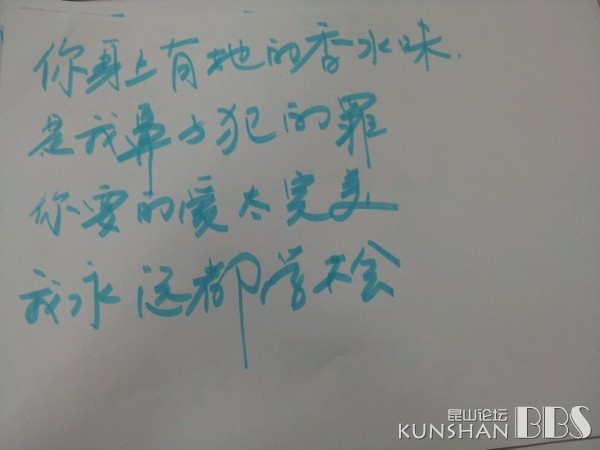 你身上有她的香水味.
是我鼻子犯的罪
你要的爱太完美
我永远都学不会
昆山论坛
KUNSHAN BBS